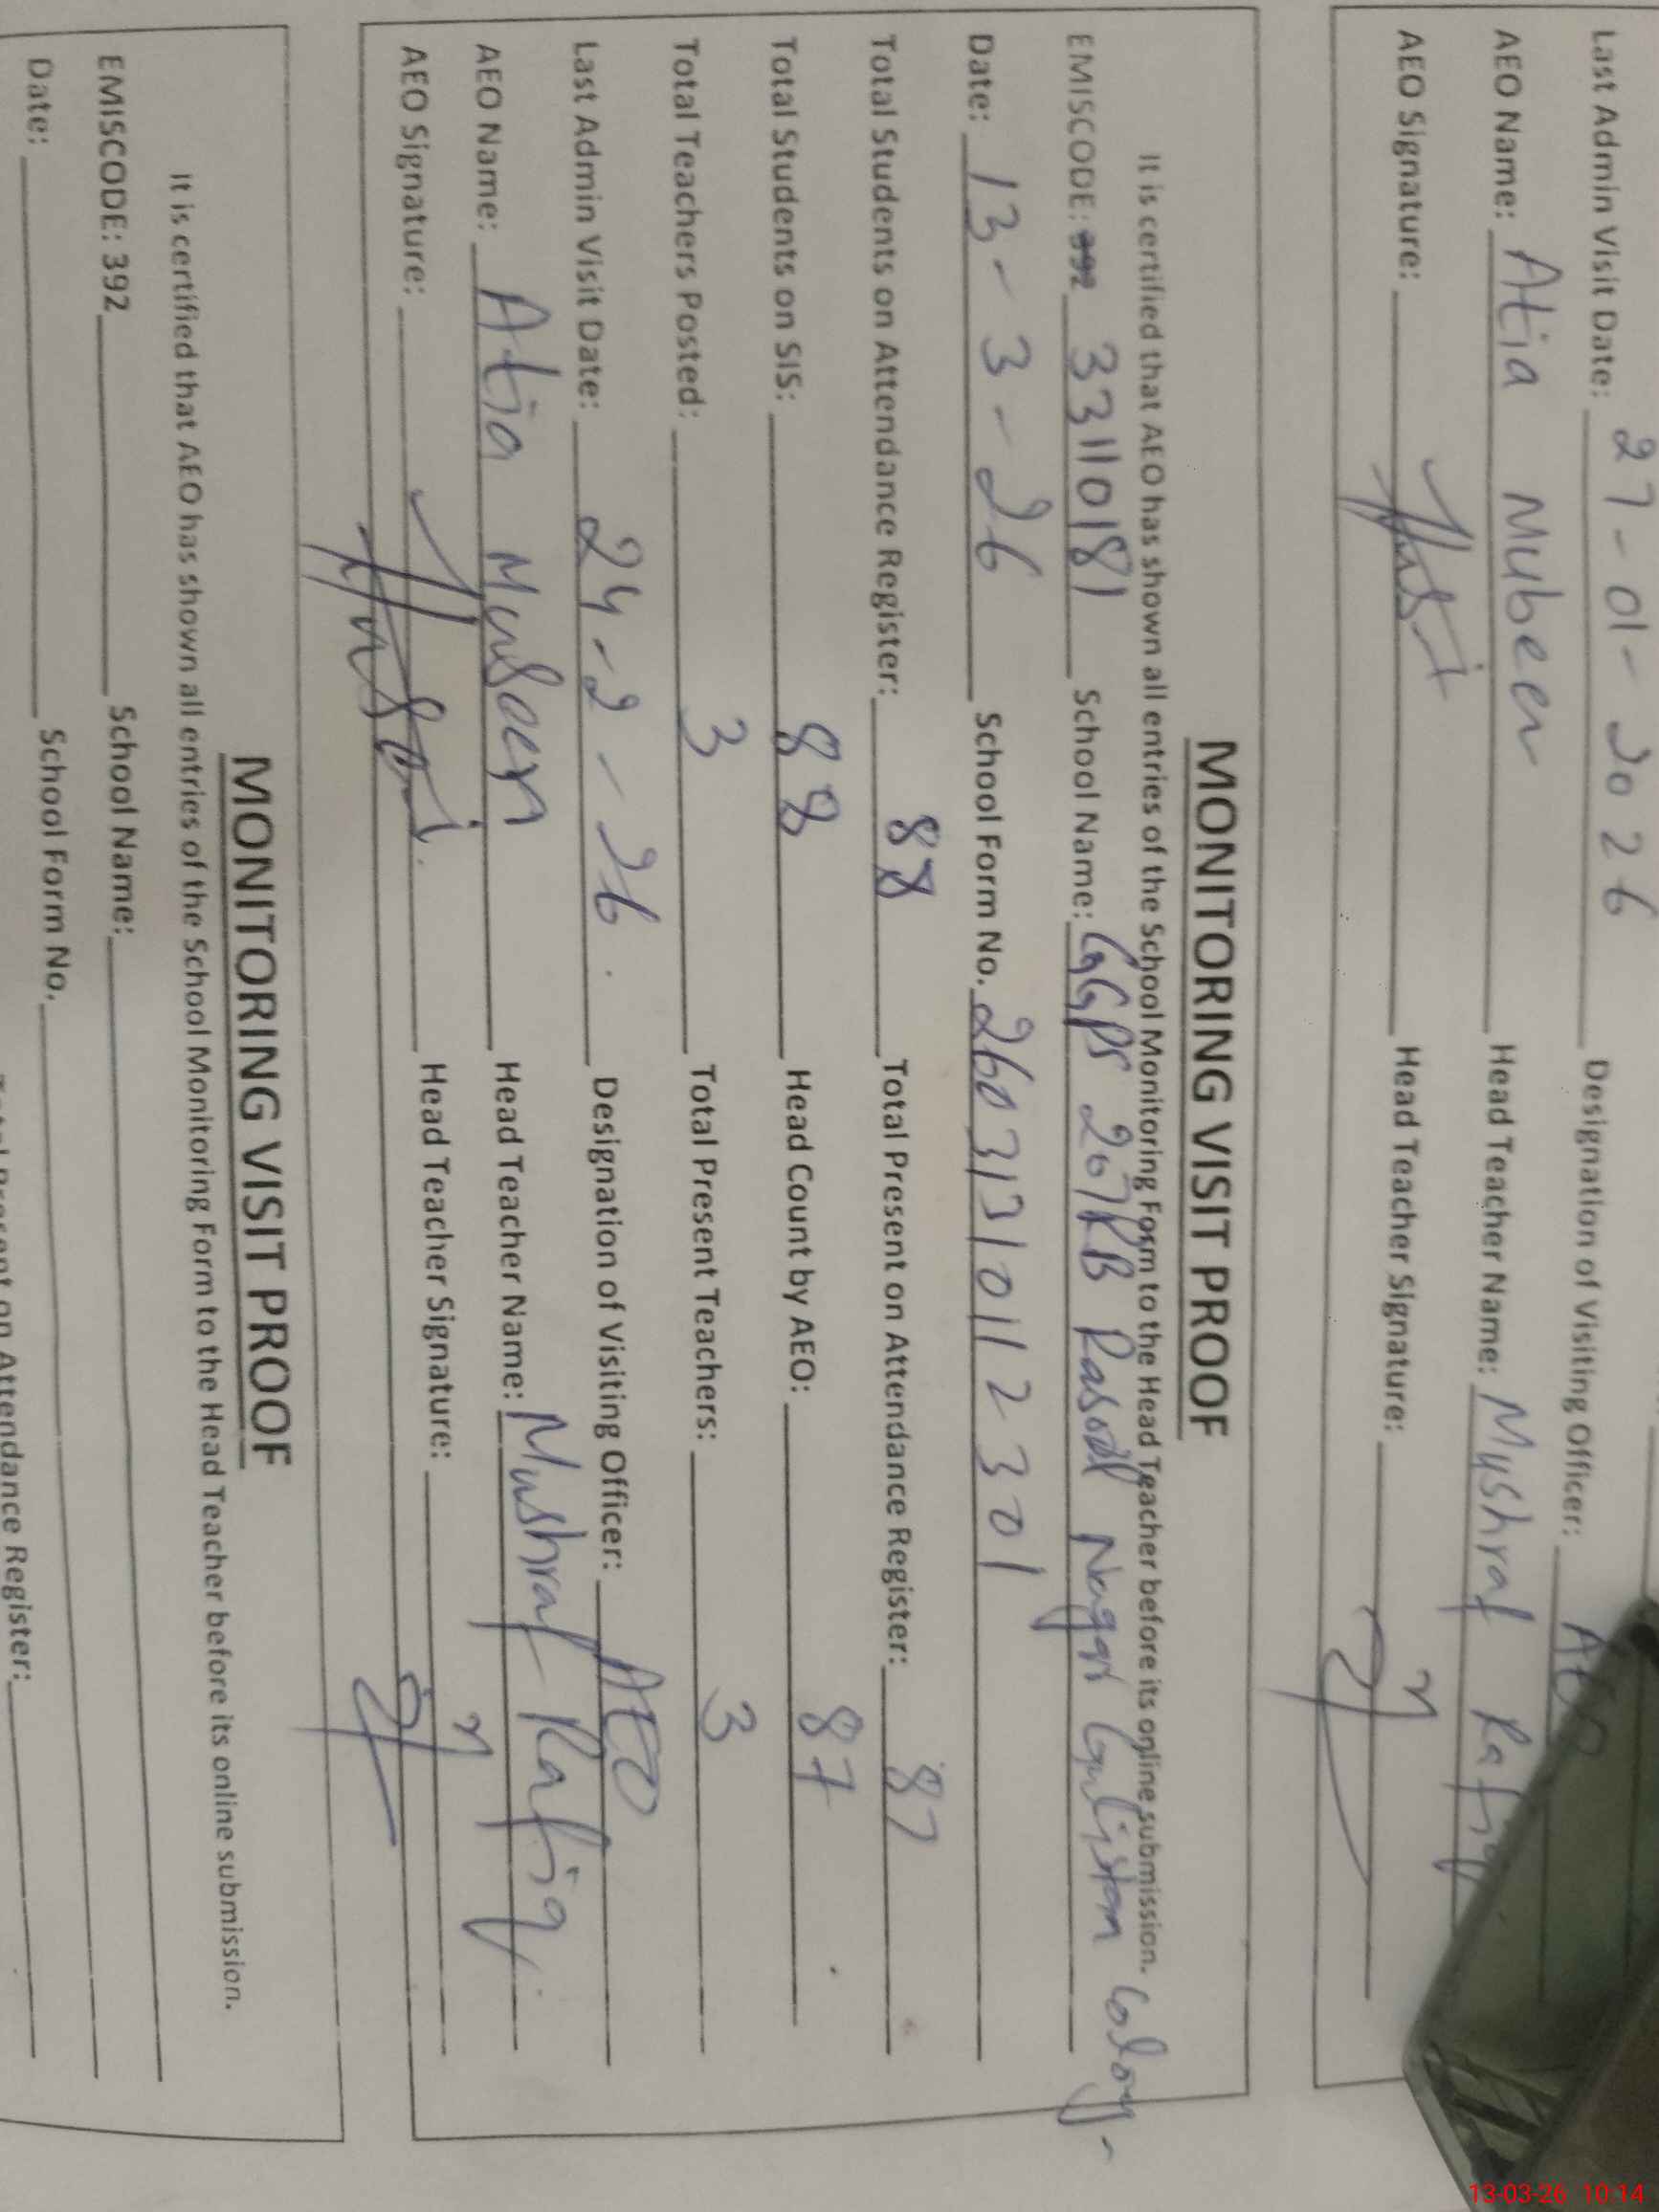 Last Admin Visit Date: 27-01-2026 Designation of Visiting Officer: AEO
AEO Name: Atia Mubeen Head Teacher Name: Mushraf Rafiq
AEO Signature: Head Teacher Signature:
MONITORING VISIT PROOF
It is certified that AEO has shown all entries of the School Monitoring Form to the Head Teacher before its online submission.
EMISCODE: 392 33110181 School Name: GGPS 207RB Rasool Nagar Gulistan Colony-
Date: 13-3-26 School Form No. 26031310112301
Total Students on Attendance Register: 88 Total Present on Attendance Register: 87
Total Students on SIS: 88 Head Count by AEO: 87
Total Teachers Posted: 3 Total Present Teachers: 3
Last Admin Visit Date: 24-2-26. Designation of Visiting Officer: AEO
AEO Name: Atia Mubeen Head Teacher Name: Mushraf Rafiq
AEO Signature: Head Teacher Signature:
MONITORING VISIT PROOF
It is certified that AEO has shown all entries of the School Monitoring Form to the Head Teacher before its online submission.
EMISCODE: 392 School Name:
Date: School Form No.
Total Present on Attendance Register:
13-03-26 10:14